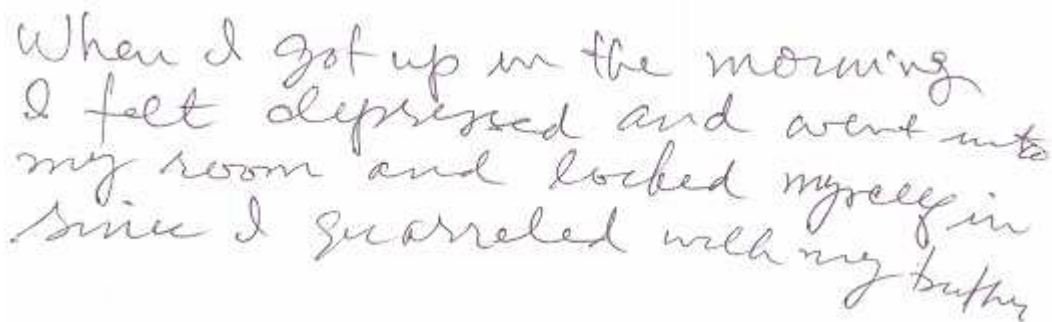 When I got up in the morning
I felt depressed and went into
my room and locked myself in
since I quarreled with my